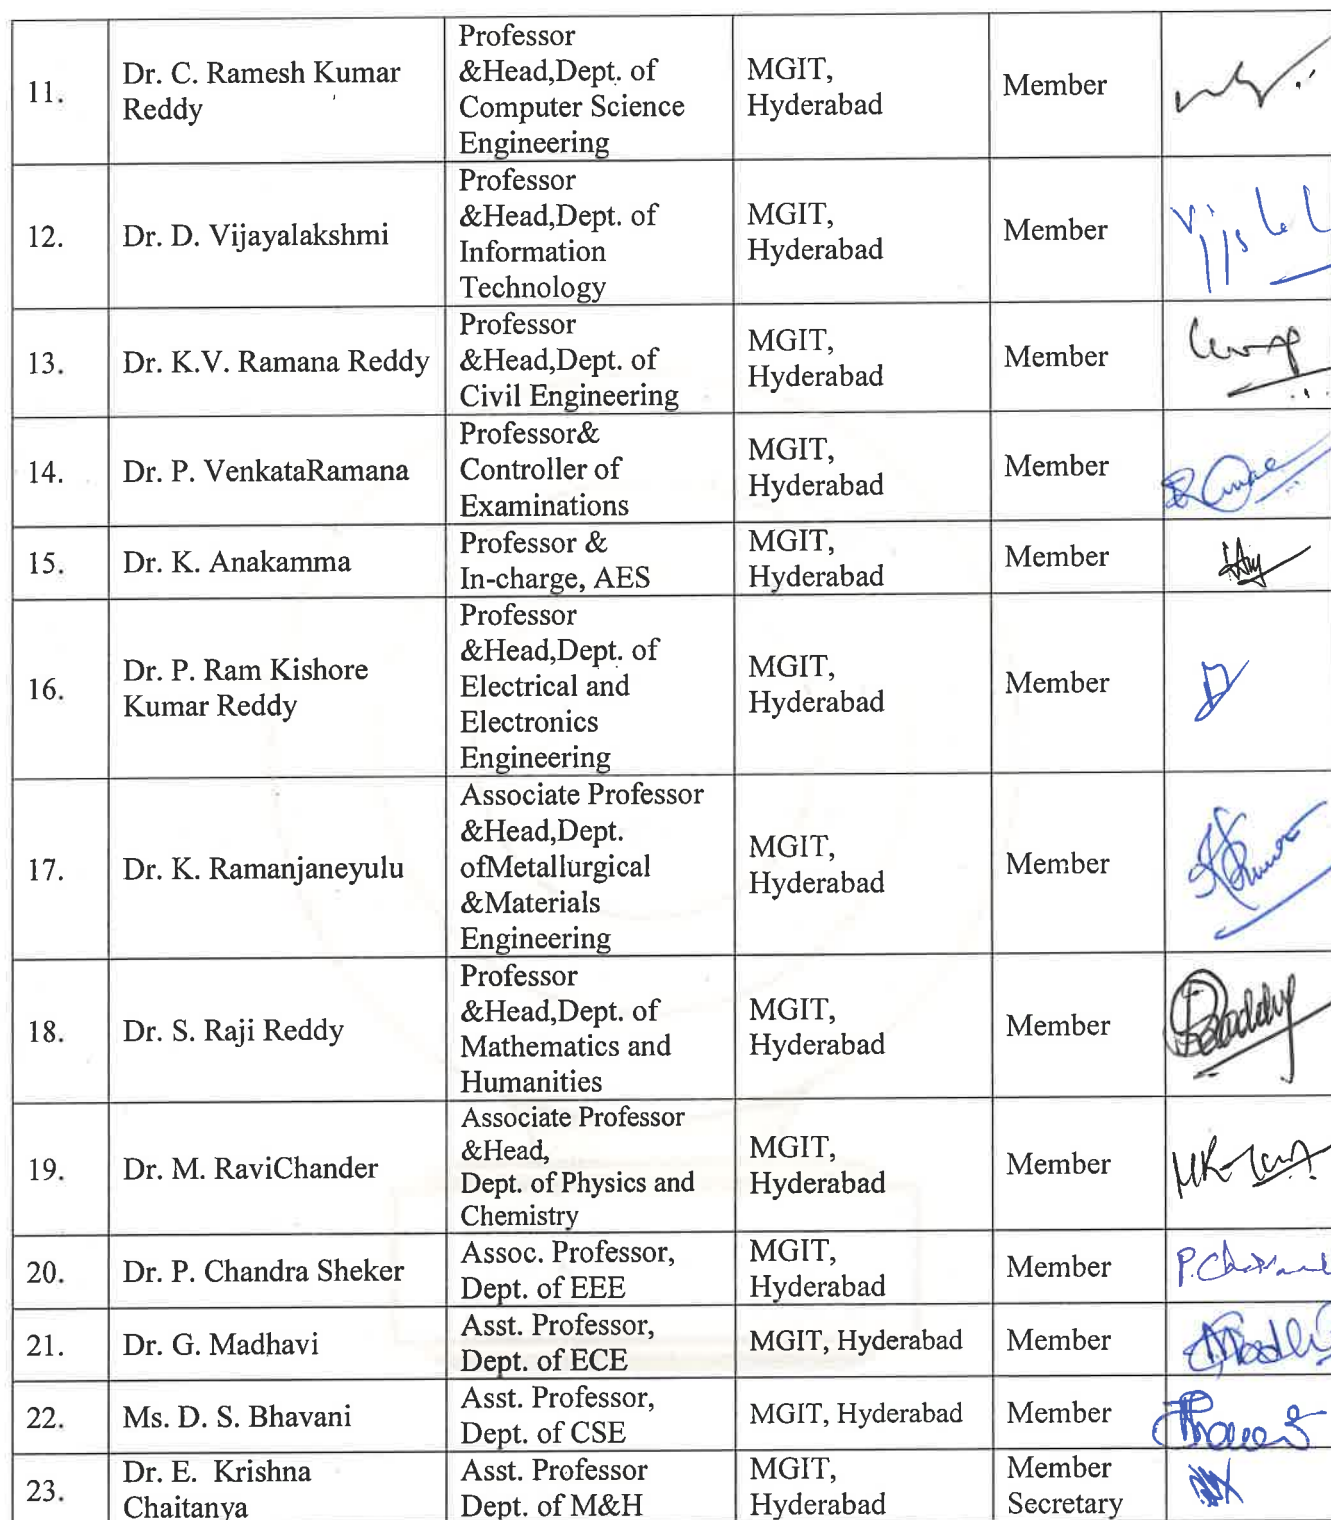 11.
Dr. C. Ramesh Kumar
Reddy
Professor
&Head,Dept. of
Computer Science
Engineering
MGIT,
Hyderabad
Member
12.
Dr. D. Vijayalakshmi
Professor
&Head,Dept. of
Information
Technology
MGIT,
Hyderabad
Member
13.
Dr. K.V. Ramana Reddy
Professor
&Head,Dept. of
Civil Engineering
MGIT,
Hyderabad
Member
14.
Dr. P. VenkataRamana
Professor&
Controller of
Examinations
MGIT,
Hyderabad
Member
15.
Dr. K. Anakamma
Professor &
In-charge, AES
MGIT,
Hyderabad
Member
16.
Dr. P. Ram Kishore
Kumar Reddy
Professor
&Head,Dept. of
Electrical and
Electronics
Engineering
MGIT,
Hyderabad
Member
17.
Dr. K. Ramanjaneyulu
Associate Professor
&Head,Dept.
ofMetallurgical
&Materials
Engineering
MGIT,
Hyderabad
Member
18.
Dr. S. Raji Reddy
Professor
&Head,Dept. of
Mathematics and
Humanities
MGIT,
Hyderabad
Member
19.
Dr. M. RaviChander
Associate Professor
&Head,
Dept. of Physics and
Chemistry
MGIT,
Hyderabad
Member
20.
Dr. P. Chandra Sheker
Assoc. Professor,
Dept. of EEE
MGIT,
Hyderabad
Member
21.
Dr. G. Madhavi
Asst. Professor,
Dept. of ECE
MGIT, Hyderabad
Member
22.
Ms. D. S. Bhavani
Asst. Professor,
Dept. of CSE
MGIT, Hyderabad
Member
23.
Dr. E. Krishna
Chaitanya
Asst. Professor
Dept. of M&H
MGIT,
Hyderabad
Member
Secretary